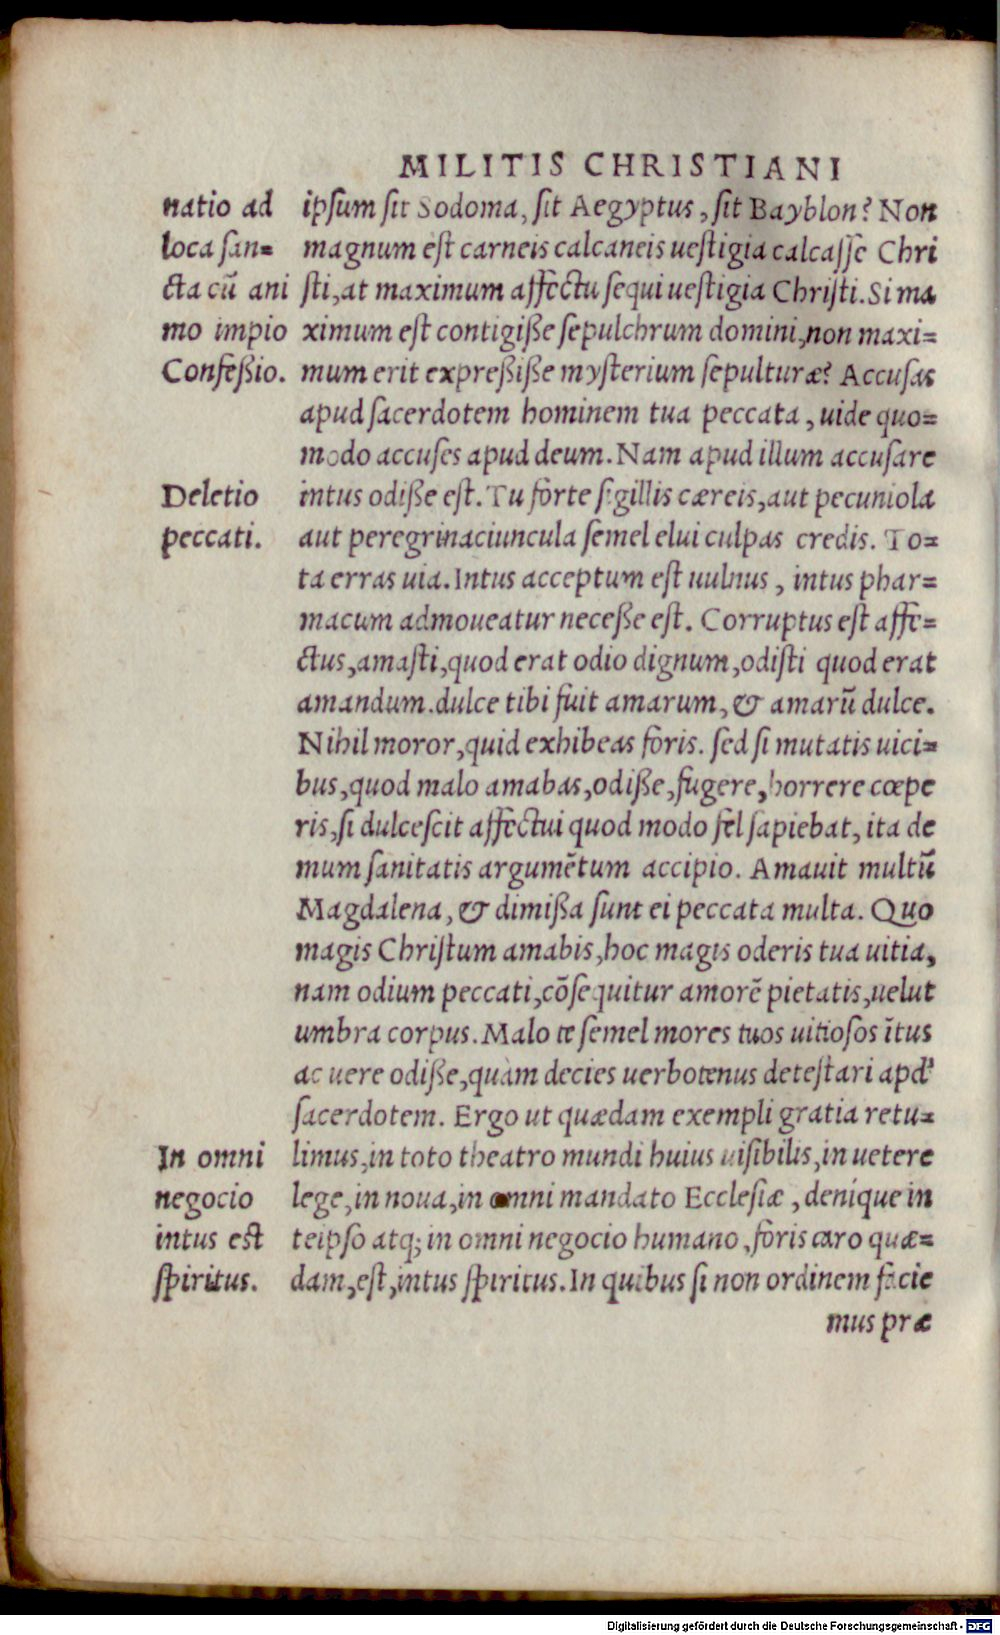 MILITIS CHRISTIANI
natio ad
loca san=
cta cū ani
mo impio
Confeßio.
ipsum sit Sodoma, sit Aegyptus, sit Bayblon? Non
magnum est carneis calcaneis uestigia calcasse Chri
sti, at maximum affectu sequi uestigia Christi. Si ma
ximum est contigiße sepulchrum domini, non maxi=
mum erit expreßiße mysterium sepulturæ? Accusas
apud sacerdotem hominem tua peccata, uide quo=
modo accuses apud deum. Nam apud illum accusare
Deletio
peccati.
intus odiße est. Tu forte sigillis cæreis, aut pecuniola
aut peregrinaciuncula semel elui culpas credis. To=
ta erras uia. Intus acceptum est uulnus, intus phar=
macum admoueatur neceße est. Corruptus est affe=
ctus, amasti, quod erat odio dignum, odisti quod erat
amandum. dulce tibi fuit amarum, & amarū dulce.
Nihil moror, quid exhibeas foris. sed si mutatis uici=
bus, quod malo amabas, odiße, fugere, horrere cœpe
ris, si dulcescit affectui quod modo fel sapiebat, ita de
mum sanitatis argumētum accipio. Amauit multū
Magdalena, & dimißa sunt ei peccata multa. Quo
magis Christum amabis, hoc magis oderis tua uitia,
nam odium peccati, cōsequitur amorē pietatis, uelut
umbra corpus. Malo te semel mores tuos uitiosos ītus
ac uere odiße, quàm decies uerbotenus detestari apd'
sacerdotem. Ergo ut quædam exempli gratia retu=
In omni
negocio
intus est
spiritus.
limus, in toto theatro mundi huius uisibilis, in uetere
lege, in noua, in omni mandato Ecclesiæ, denique in
teipso atq; in omni negocio humano, foris caro quæ=
dam, est, intus spiritus. In quibus si non ordinem facie
mus præ
Digitalisierung gefördert durch die Deutsche Forschungsgemeinschaft - DFG